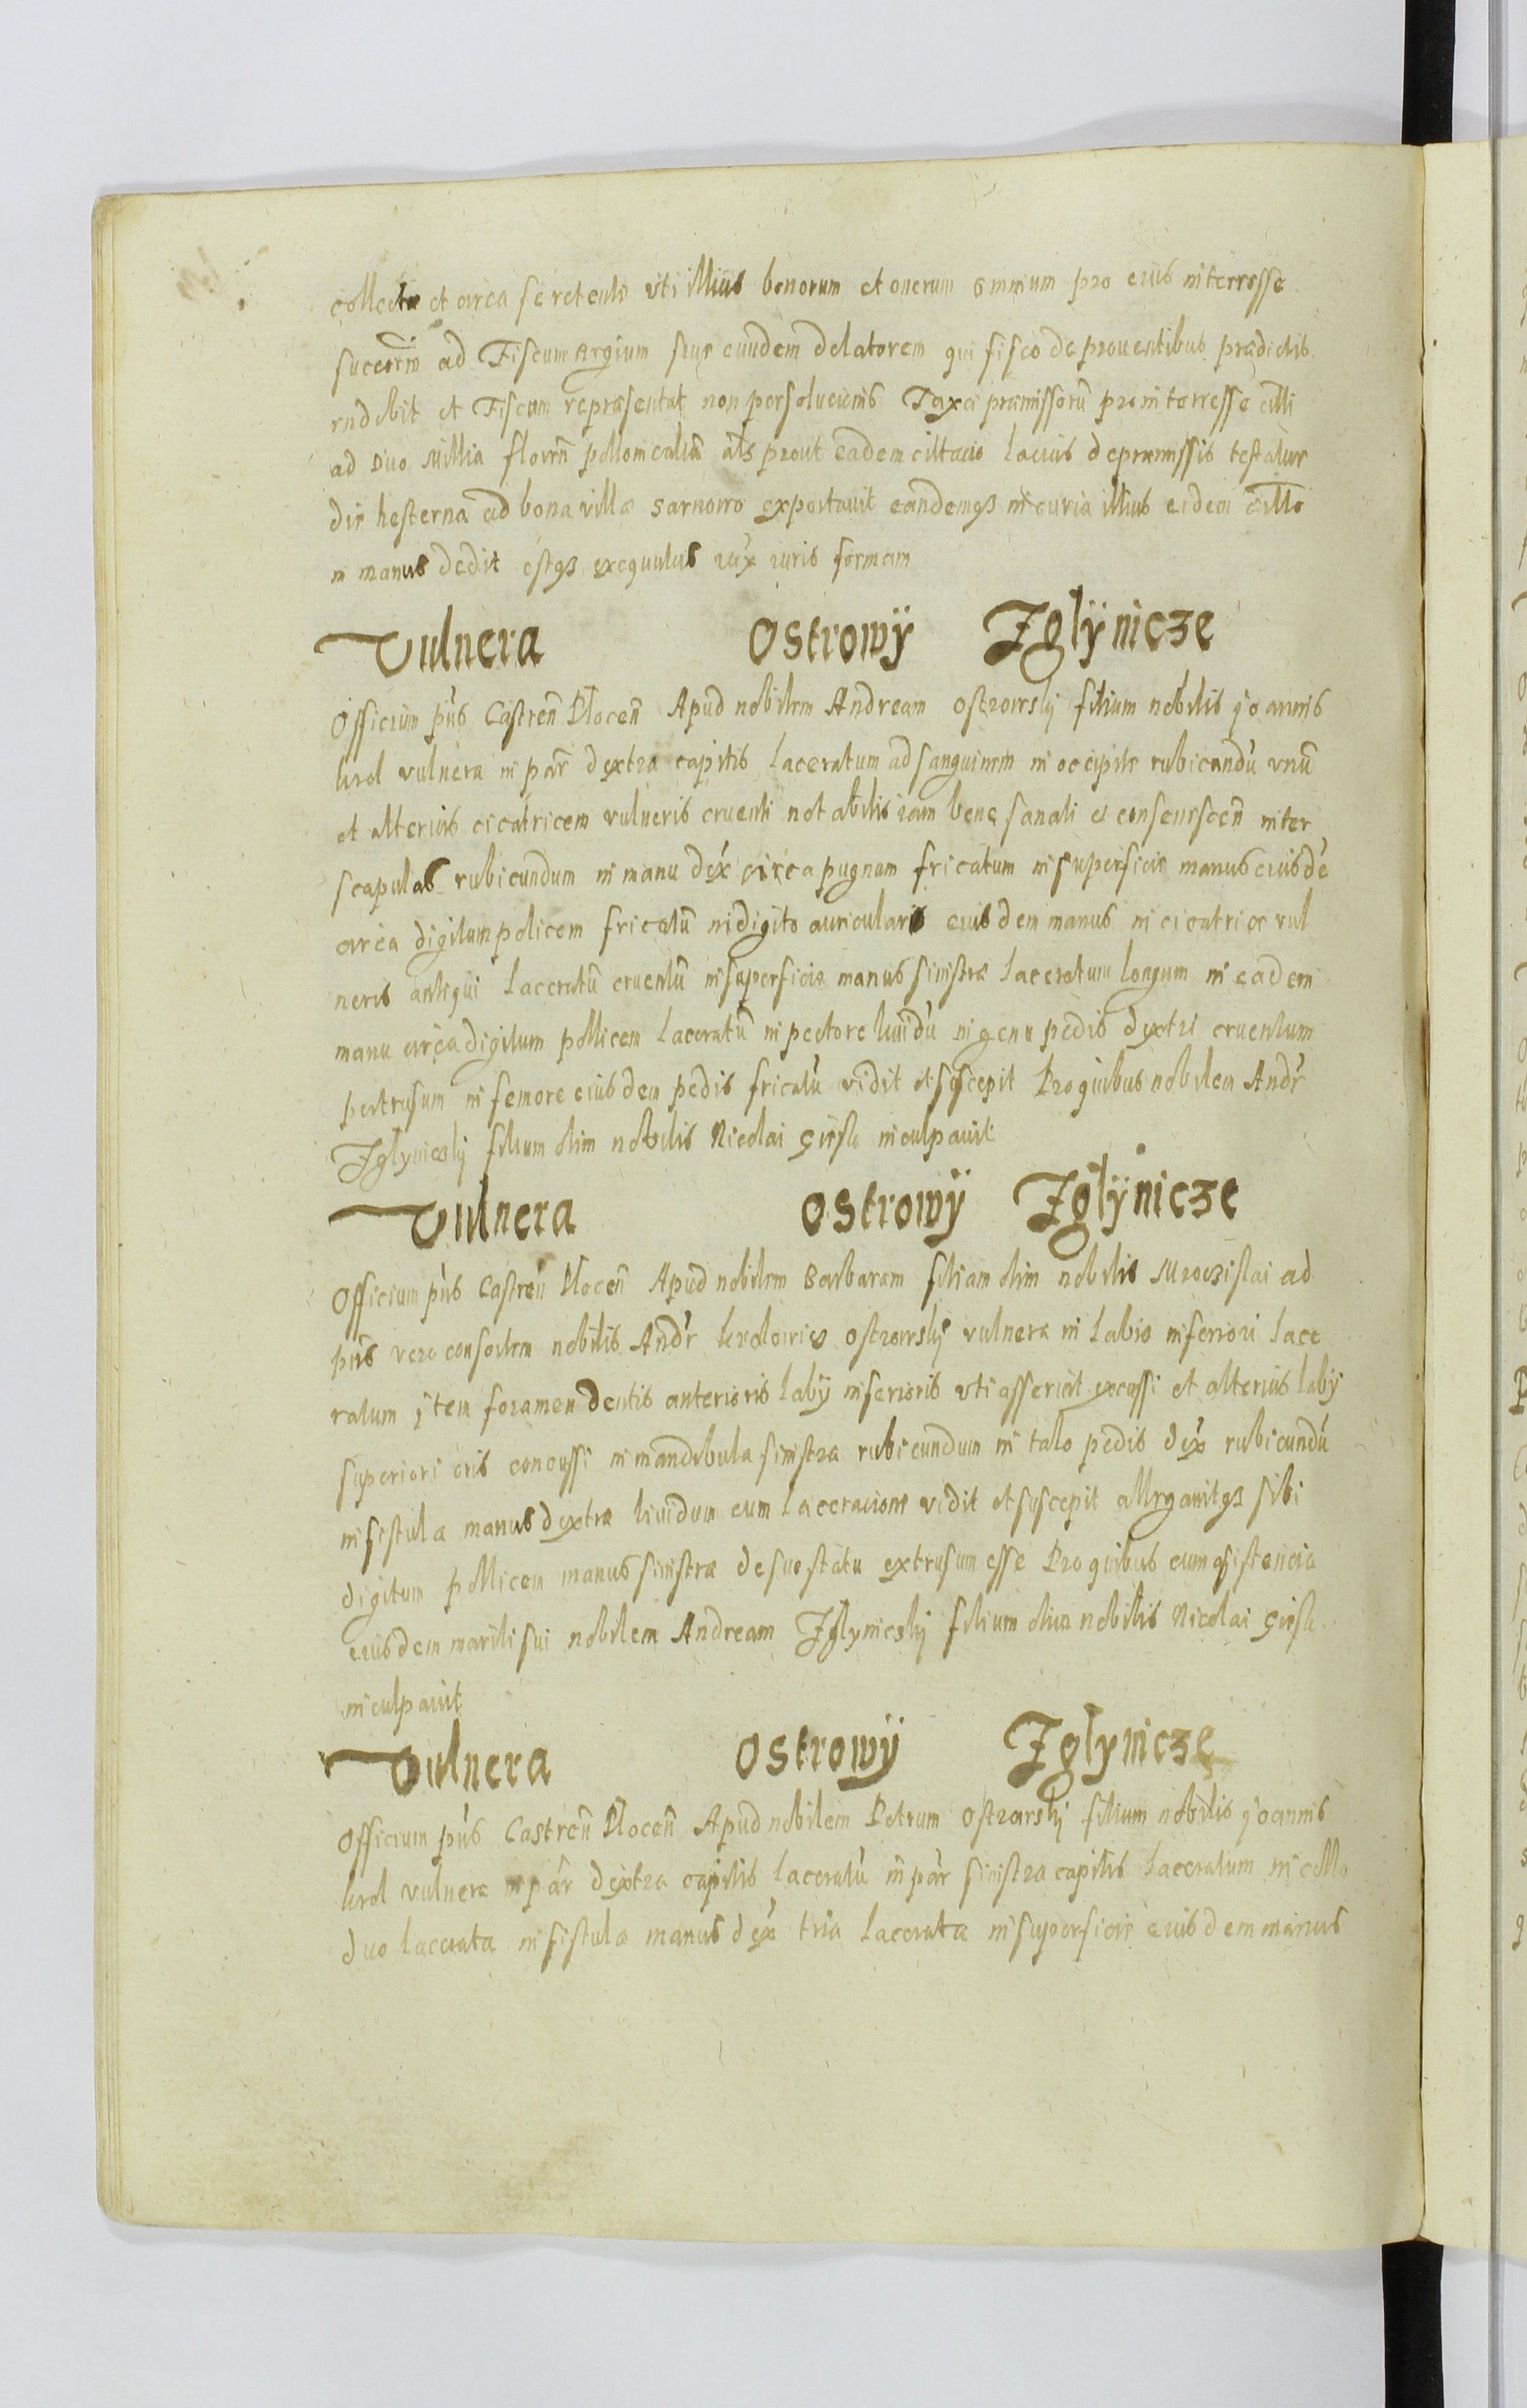 collecta et circa se retenta uti illius bonorum et onerum omnium pro eius interresse
ad Fiscum Regium siue eundem delatorem qui fisco de prouentibus prædictis
rndebit et Fiscum repræsentat non persolucionis Taxa præmissorũ pro interresse
ad Duo Millia florñ pollonicaliũ als prout eadem cittacio lacius de præmissis testatur
die hesterna ad bona villæ Sarnowo exportauit eandemqз in curia illius eidem citto
in manus dedit estqз exequutus iux iuris formam
Vulnera Ostrowÿ Jglÿnicze
Officium pñs Castreñ Plocen Apud nobilem Andream Ostrowskj filium nobilis Joannis
vulnera in par dextra capitis laceratum ad sanguinem in occipite rubicundũ vnũ
et alterius cicatricem vulneris cruenti notabilis iam bene sanati et inter
scapulas rubicundum in manu dex circa pugnam fricatum in superficie manus eiusdẽ
circa digitum policem fricatũ in digito auricularis eiusdem manus in cicatrice vul
neris antiqui laceratũ cruentũ in superficie manus sinistræ laceratum longum in eadem
manu circa digitum pollicem laceratũ in pectore liuidũ in genu pedis dextri cruentum
pertrusum in femore eiusdem pedis fricatũ vidit et suscepit Pro quibus nobilem Andr
Jglynicskj filium olim nobilis Nicolai inculpauit
Vulnera Ostrowÿ Jglÿnicze
Officium pñs Castreñ Plocen Apud nobilem Barbaram filiam olim nobilis Mrocзislai ad
pñs vero consortem nobilis Andr Ostrowskj vulnera in labio inferiori lace
ratum item foramen dentis anterioris labÿ inferioris uti asseruit excussi et alterius labÿ
superioris concussi in mandibula sinistra rubicundum in talo pedis dex rubicundũ
in fistula manus dextræ liuidum cum laceracione vidit et suscepit allegauitqз sibi
digitum pollicem manus sinistræ de suo statu extrusum esse Pro quibus cum assistencia
eiusdem mariti sui nobilem Andream Jglynicskj filium olim nobilis Nicolai
inculpauit
Vulnera Ostrowÿ Jglynicze
Officium pñs Castreñ Plocen Apud nobilem Petrum Ostrowskj filium nobilis Joannis
vulnera in par dextra capitis laceratũ in par sinistra capitis laceratum in collo
duo lacerata in fistula manus dex tria lacerata in superficie eiusdem manus